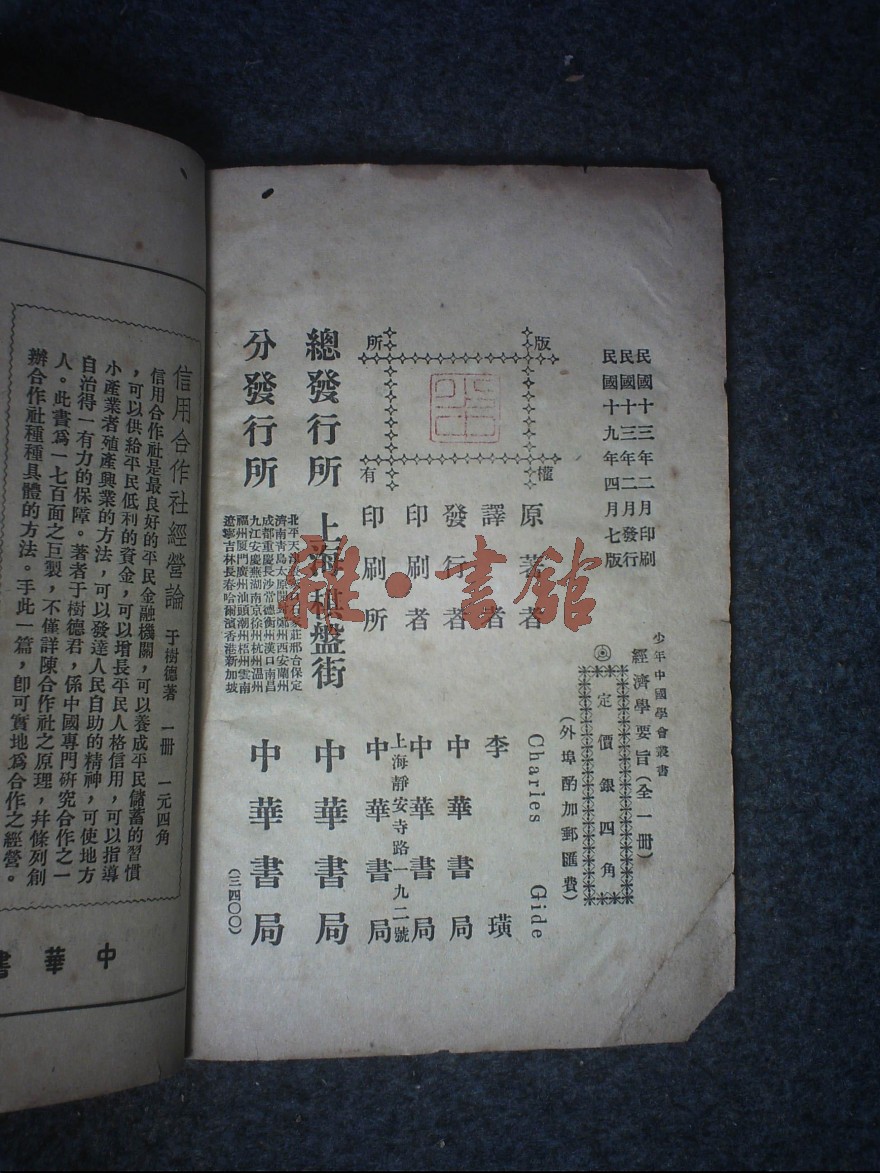 民國十三年二月印刷
民國十三年二月發行
民國十九年四月七版
少年中國學會叢書
經濟學要旨(全一冊)
定價銀四角
(外埠酌加郵匯費)
版權
所有
原著者 Charles Gide
譯者 李璜
發行者 中華書局
印刷者 中華書局
上海靜安寺路一九二號
印刷所 中華書局
總發行所 上海棋盤街 中華書局
分發行所 中華書局
邢台保定
濟南青島太原開封鄭州西安蘭州
成都重慶長沙常德衡州漢口南昌
九江安慶蕪湖南京徐州杭州溫州
福州厦門廣州汕頭潮州梧州雲南
遼寧吉林長春哈爾濱香港新加坡
(三四〇〇)
信用合作社經營論 于樹德著 一冊 一元四角
信用合作社是最良好的平民金融機關,可以養成平民儲蓄的習慣
,可以供給平民低利的資金,可以增長平民人格信用,可以指導
小產業者殖產興業的方法,可以發達人民自助的精神,可使地方
自治得一有力的保障。著者于樹德君,係中國專門研究合作之一
人。此書爲一七百面之巨製,不僅詳陳合作社之原理,幷條列創
辦合作社種種具體的方法。手此一篇,卽可實地爲合作之經營。
中華書
雅·書館